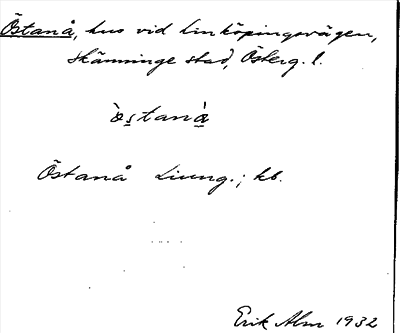 Östanå, hus vid Linköpingsvägen,
Skänninge stad, Österg. l.
òstanà
Östanå Ljung.; kb.
Erik Alm 1932